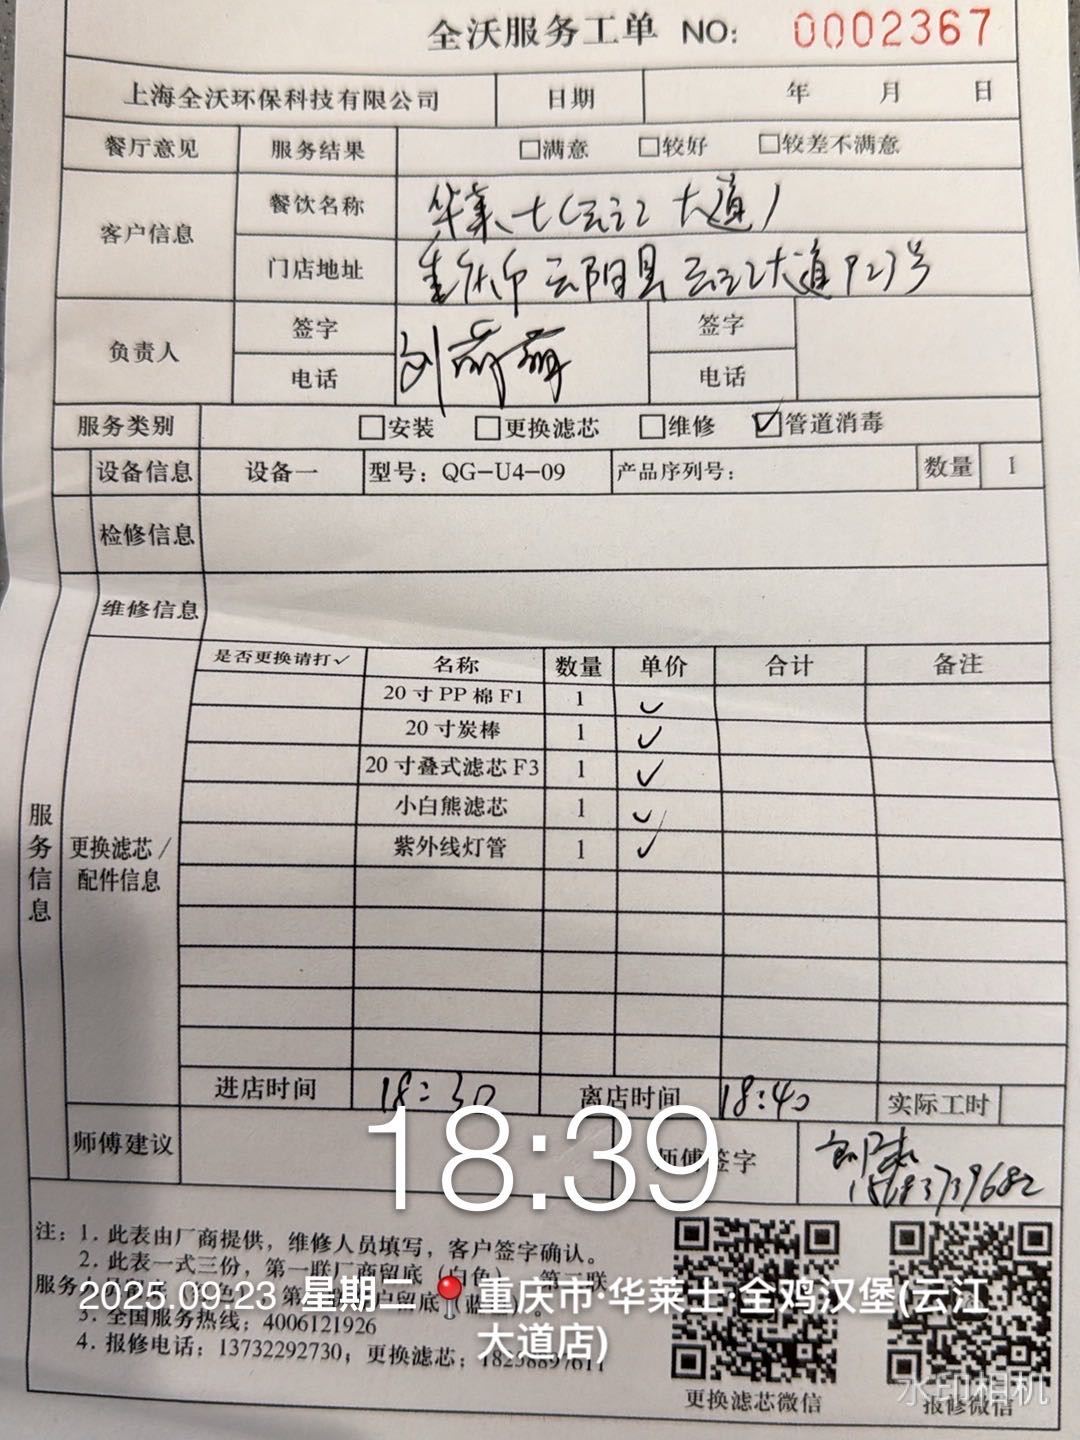 全沃服务工单 NO: 0002367
上海全沃环保科技有限公司 日期 年 月 日
餐厅意见 服务结果 □满意 □较好 □较差不满意
客户信息
餐饮名称 华莱士(云江大道)
门店地址 重庆市云阳县云江大道927号
负责人
签字 刘萌萌 签字
电话 电话
服务类别 □安装 □更换滤芯 □维修 ☑管道消毒
设备信息 设备一 型号: QG-U4-09 产品序列号: 数量 1
检修信息
维修信息
服务信息
更换滤芯/配件信息
是否更换请打✓ 名称 数量 单价 合计 备注
20寸PP棉F1 1 ✓
20寸炭棒 1 ✓
20寸叠式滤芯F3 1 ✓
小白熊滤芯 1 ✓
紫外线灯管 1 ✓
进店时间 18:30 离店时间 18:40 实际工时
师傅建议 师傅签字
18:39
注: 1. 此表由厂商提供，维修人员填写，客户签字确认。
2. 此表一式三份，第一联厂商留底（白色），第二联
服务
3. 全国服务热线: 4006121926
4. 报修电话: 13732292730; 更换滤芯:
2025.09.23 星期二 重庆市·华莱士·全鸡汉堡(云江
大道店)
更换滤芯微信 报修微信
水印相机